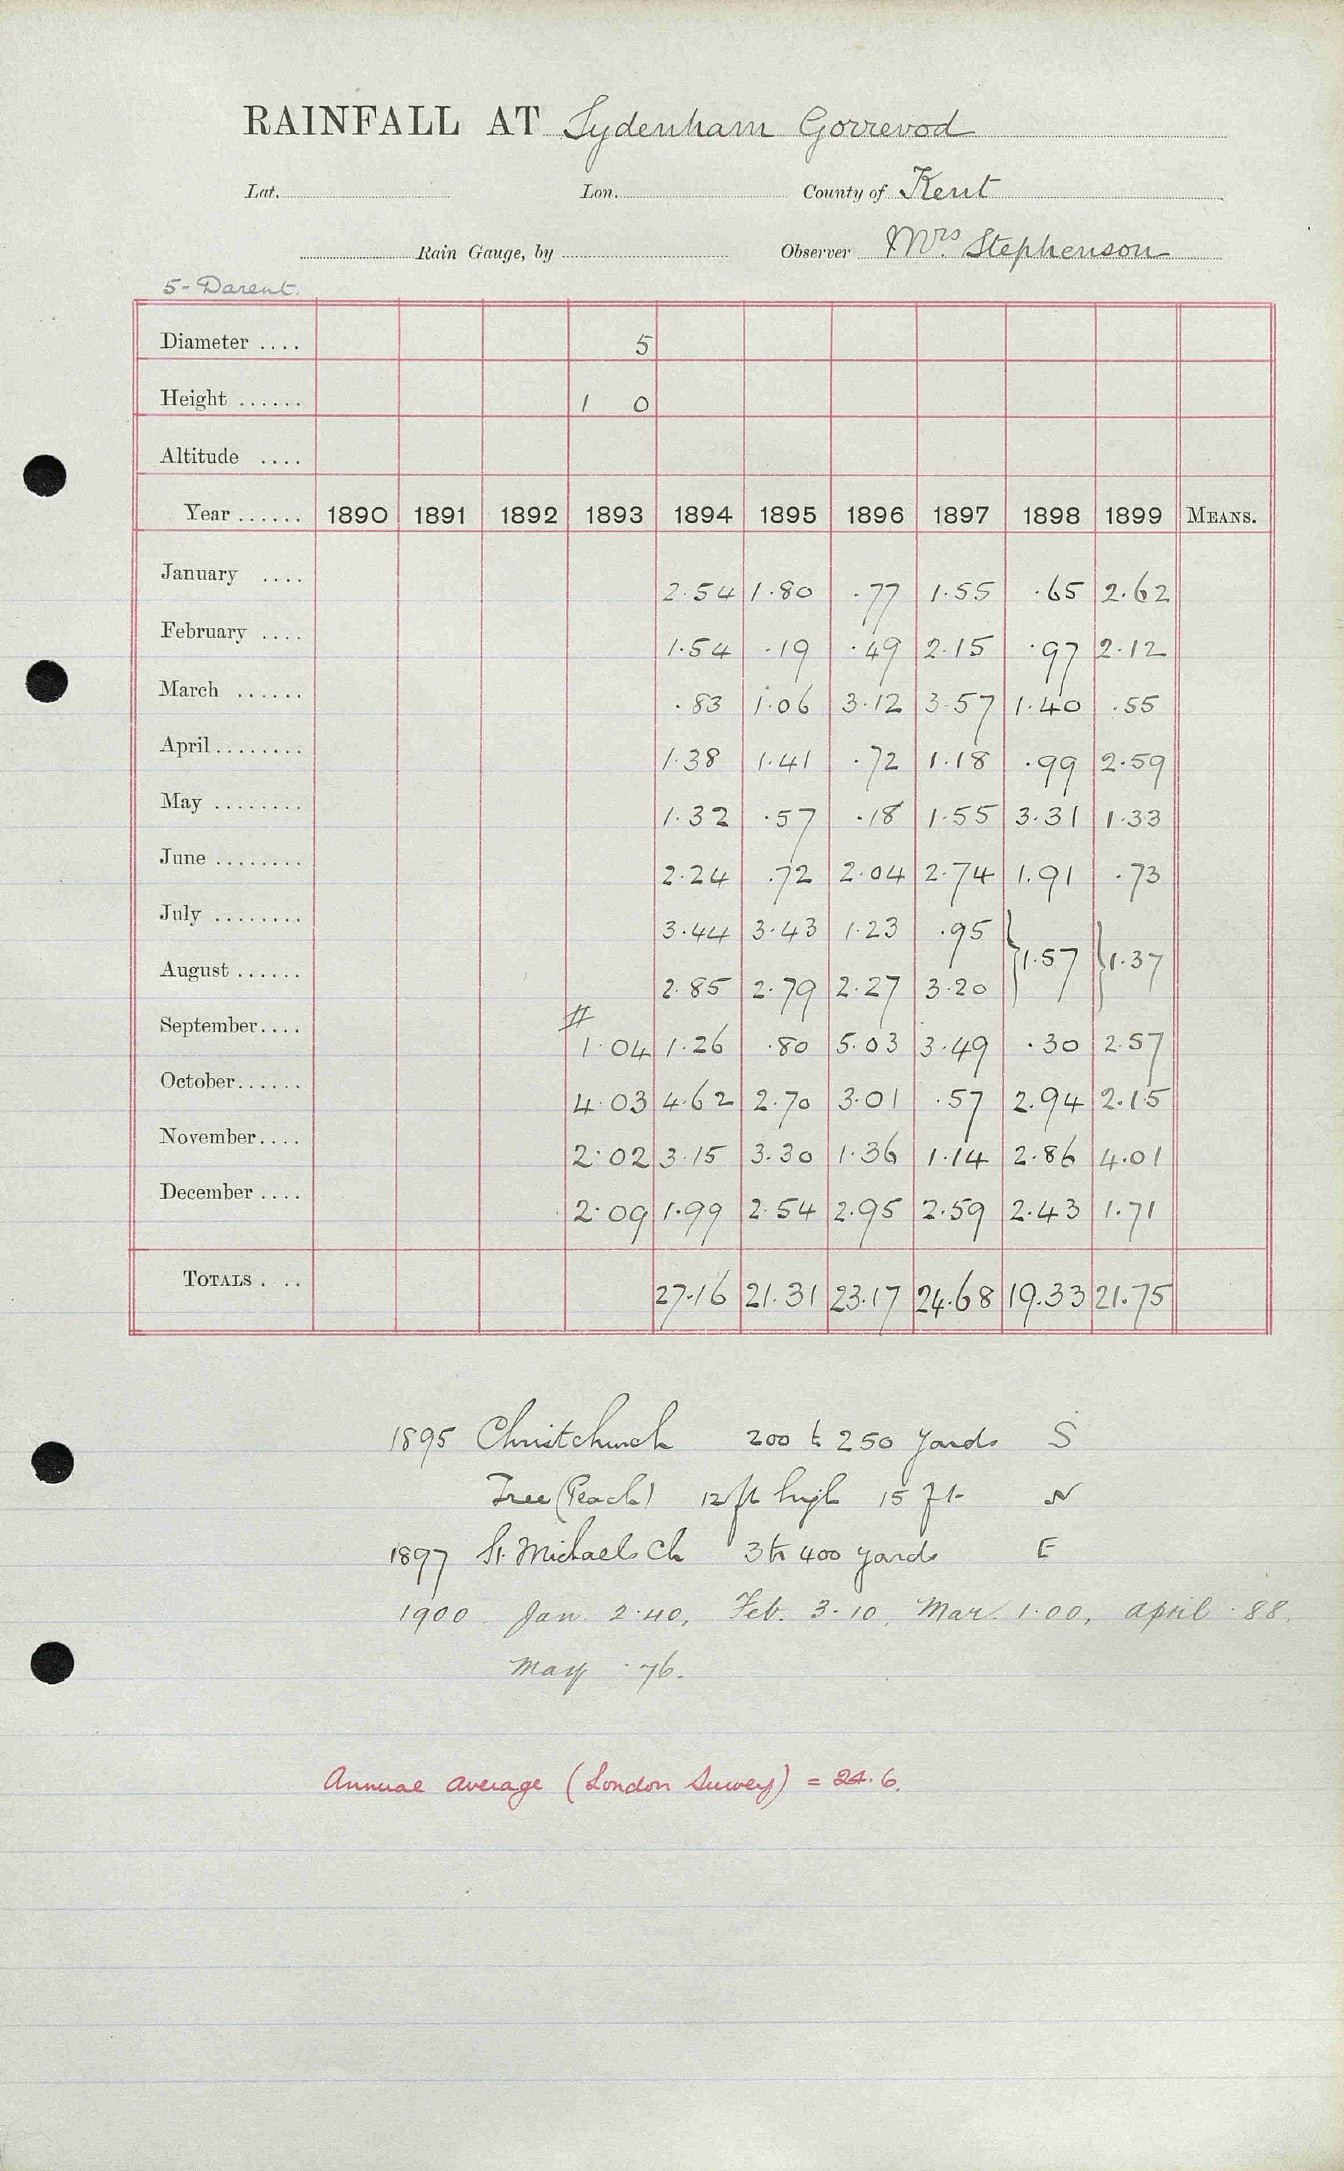 RAINFALL AT Sydenham Gorrevod
Lat. Lon. County of Kent
Rain Gauge, by Observer Mrs. Stephenson
5 - Darent.
Diameter .... 5
Height ...... 1 0
Altitude ....
Year ...... 1890 1891 1892 1893 1894 1895 1896 1897 1898 1899 MEANS.
January .... 2.54 1.80 .77 1.55 .65 2.62
February .... 1.54 .19 .49 2.15 .97 2.12
March ...... .83 1.06 3.12 3.57 1.40 .55
April ........ 1.38 1.41 .72 1.18 .99 2.59
May ........ 1.32 .57 .18 1.55 3.31 1.33
June ........ 2.24 .72 2.04 2.74 1.91 .73
July ........ 3.44 3.43 1.23 .95 } 1.57 } 1.37
August ...... 2.85 2.79 2.27 3.20
September .... # 1.04 1.26 .80 5.03 3.49 .30 2.57
October ...... 4.03 4.62 2.70 3.01 .57 2.94 2.15
November .... 2.02 3.15 3.30 1.36 1.14 2.86 4.01
December .... 2.09 1.99 2.54 2.95 2.59 2.43 1.71
TOTALS . .. 27.16 21.31 23.17 24.68 19.33 21.75
1895 Christchurch 200 to 250 yards S
Tree (Peach) 12 ft high 15 ft N
1897 St. Michaels Ch 3 to 400 yards E
1900 Jan. 2.40, Feb. 3.10, Mar. 1.00, April .88,
May .76.
Annual average (London Survey) = 24.6.